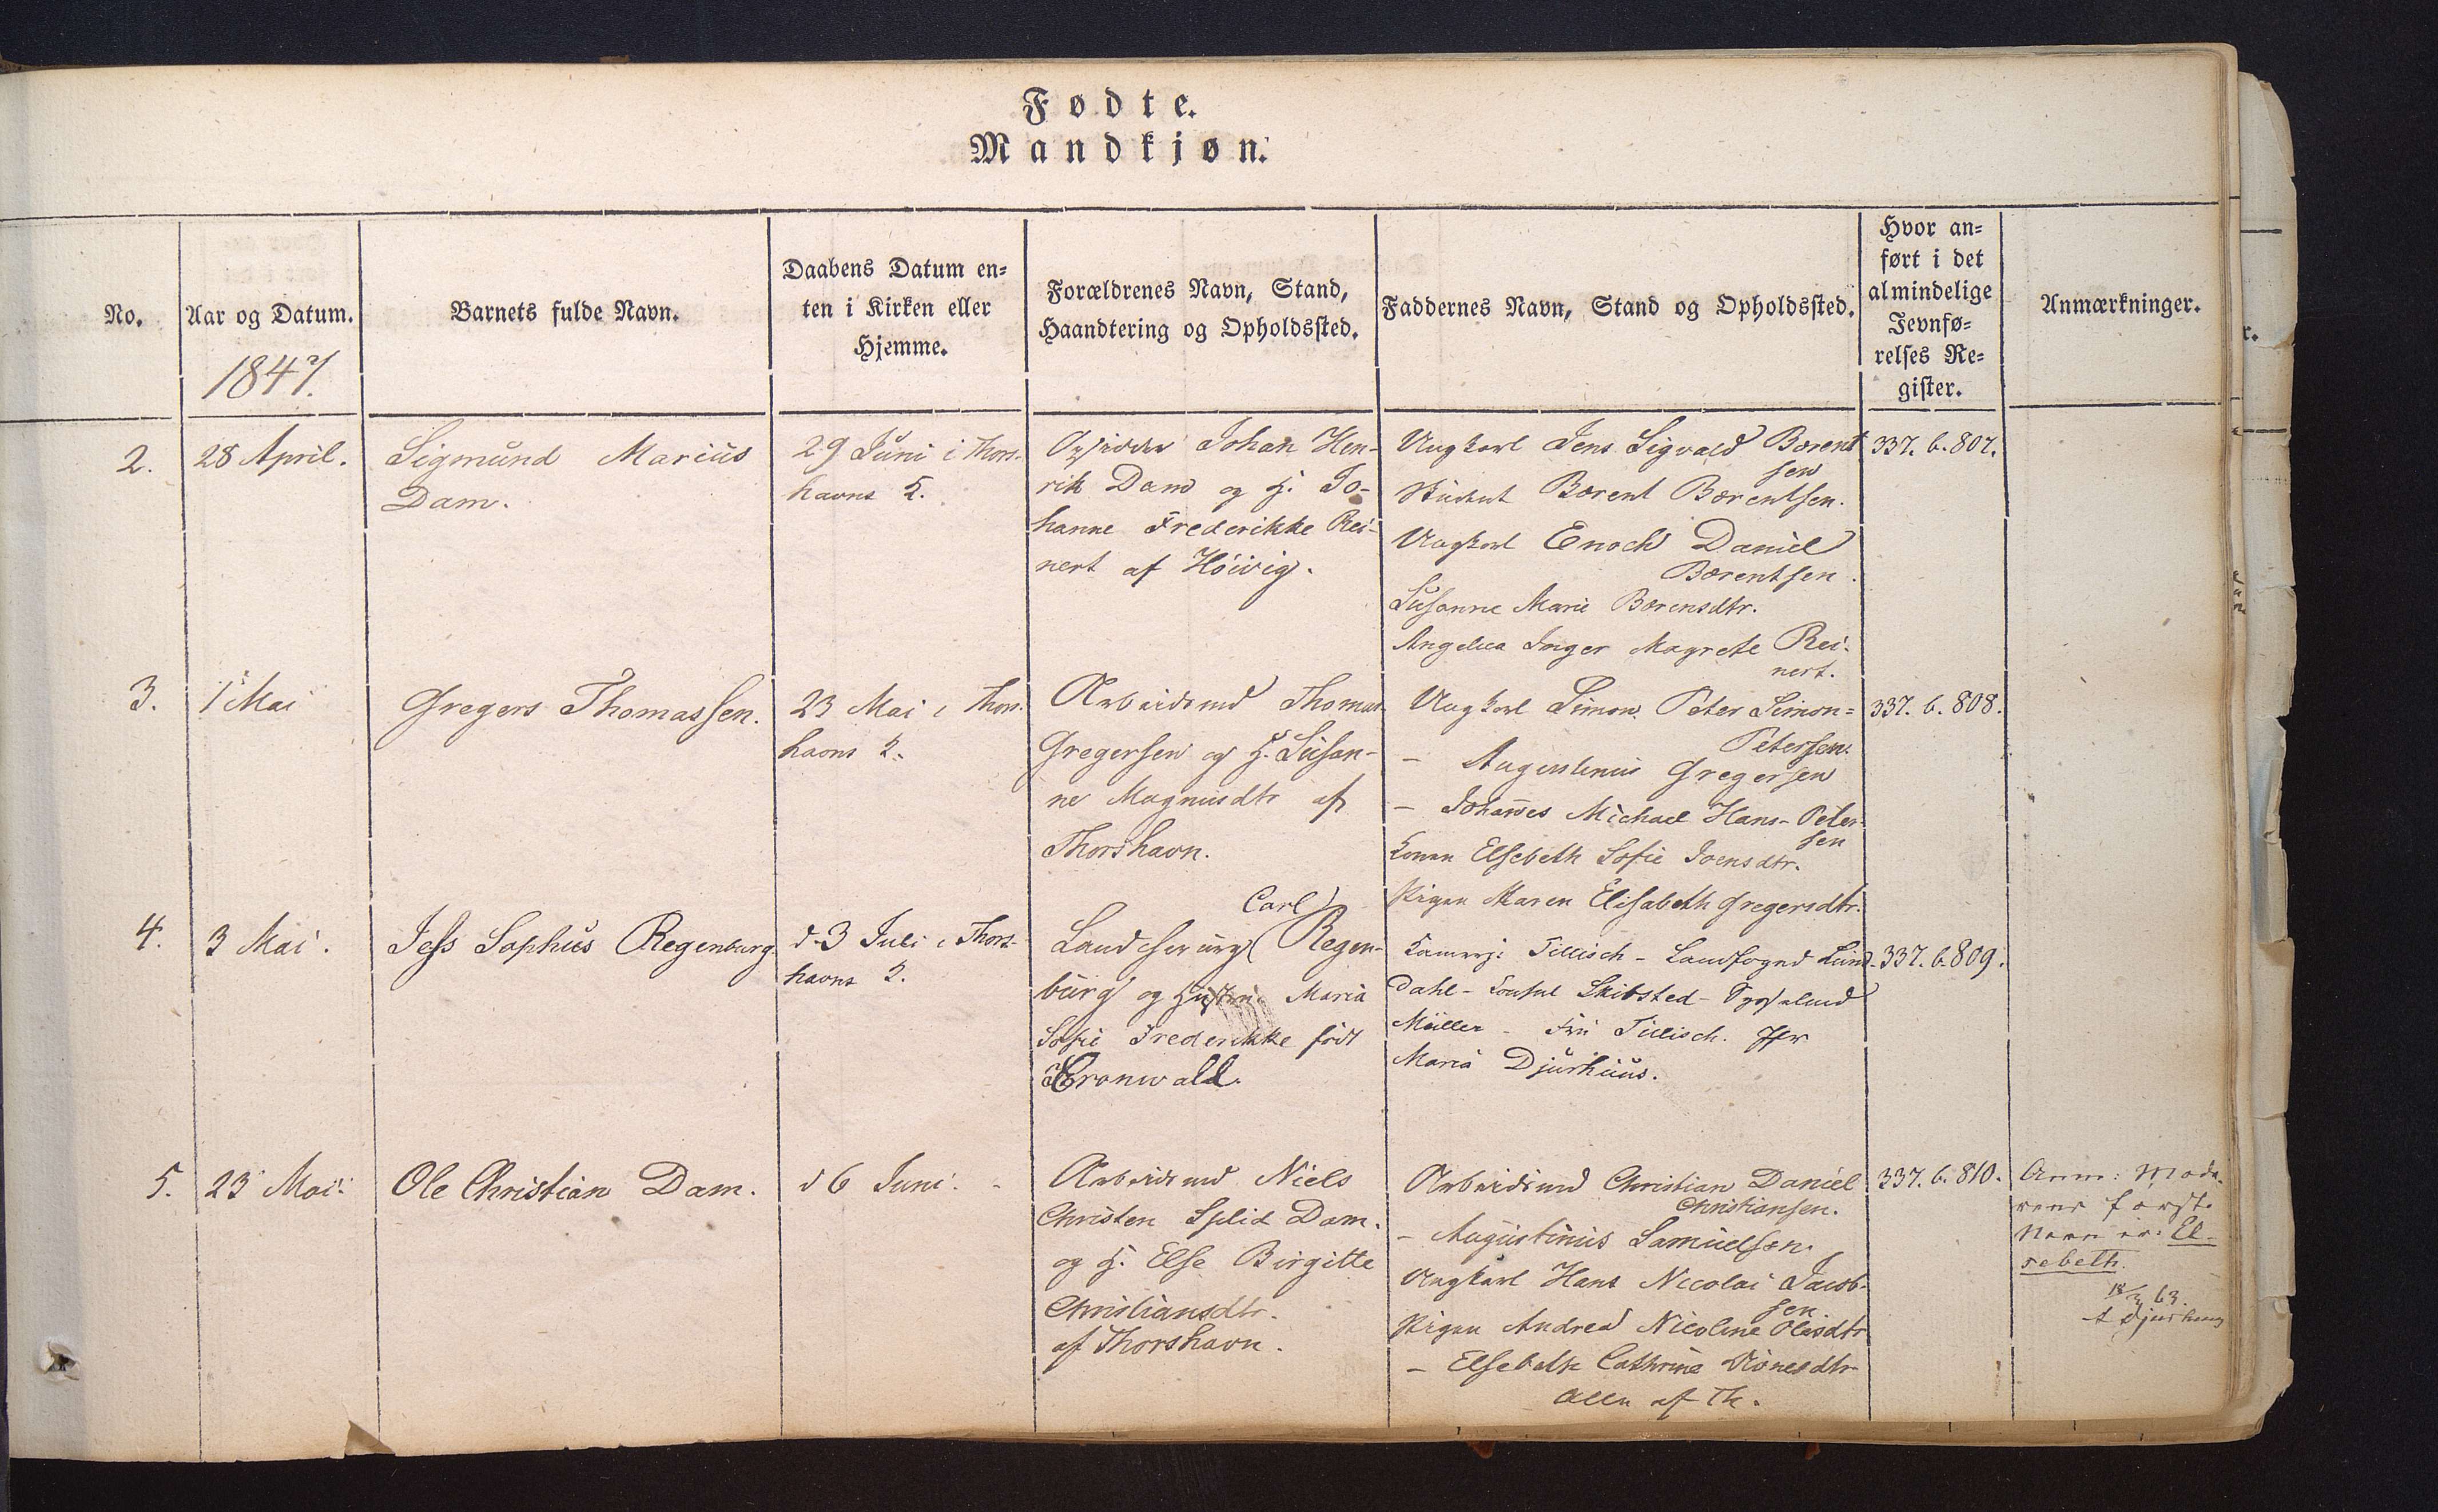 Fødte.
Mandkjøn.
No.
Aar og Datum.
1847.
Barnets fulde Navn.
Daabens Datum en=
ten i Kirken eller
Hjemme.
Forældrenes Navn, Stand,
Haandtering og Opholdssted.
Faddernes Navn, Stand og Opholdssted.
Hvor an=
ført i det
almindelige
Jevnfø=
relses Re=
gister.
Anmærkninger.
2.
28 April.
Sigmund Marius
Dam.
29 Juni i Thors-
havns K.
Opsidder Johan Hen-
rik Dam og H. Jo-
hanne Frederikke Rei-
nert af Höivig.
Ungkarl Jens Sigvald Bærent
sen
Student Bærent Bærentsen.
Ungkarl Enoch Daniel
Bærentsen.
Susanne Marie Bærensdtr.
Angelica Inger Magrete Rei-
nert.
337. b. 807.
3.
1 Mai
Gregers Thomassen.
23 Mai i Thors-
havns K.
Arbeidsmd Thomas
Gregersen og H. Susan-
ne Magnusdtr af
Thorshavn.
Ungkarl Simon Peter Simon=
Petersen.
- Augustinus Gregersen
- Johannes Michael Hans-Peter-
sen
Konen Elsebeth Sofie Joensdtr.
Pigen Maren Elisabeth Gregersdtr.
337. b. 808.
4.
3 Mai.
Jess Sophus Regenburg
d. 3 Juli i Thors-
havns K.
Carl
Landchirurg Regen-
burg og Hustru Maria
Sofie Frederikke född
Cronwald.
Kammerj: Tillisch - Landfoged Lund-
dahl - Consul Skibsted - Sysselmd
Müller - Fru Tillisch. Jfr
Maria Djurhuus.
337. b. 809.
5.
23 Mai.
Ole Christian Dam.
d 6 Juni. -
Arbeidsmd Niels
Christen Splid Dam.
og H. Else Birgitte
Christiansdtr.
af Thorshavn.
Arbeidsmd Christian Daniel
Christiansen.
- Augustinus Samuelsen.
Ungkarl Hans Nicolai Jacob-
sen.
Pigen Andrea Nicoline Olesdtr
- Elsebeth Cathrine
Alle af Th.
337. b. 810.
Anm: Mode-
rens første
Navn er: El-
sebeth.
63.
Djurhuus